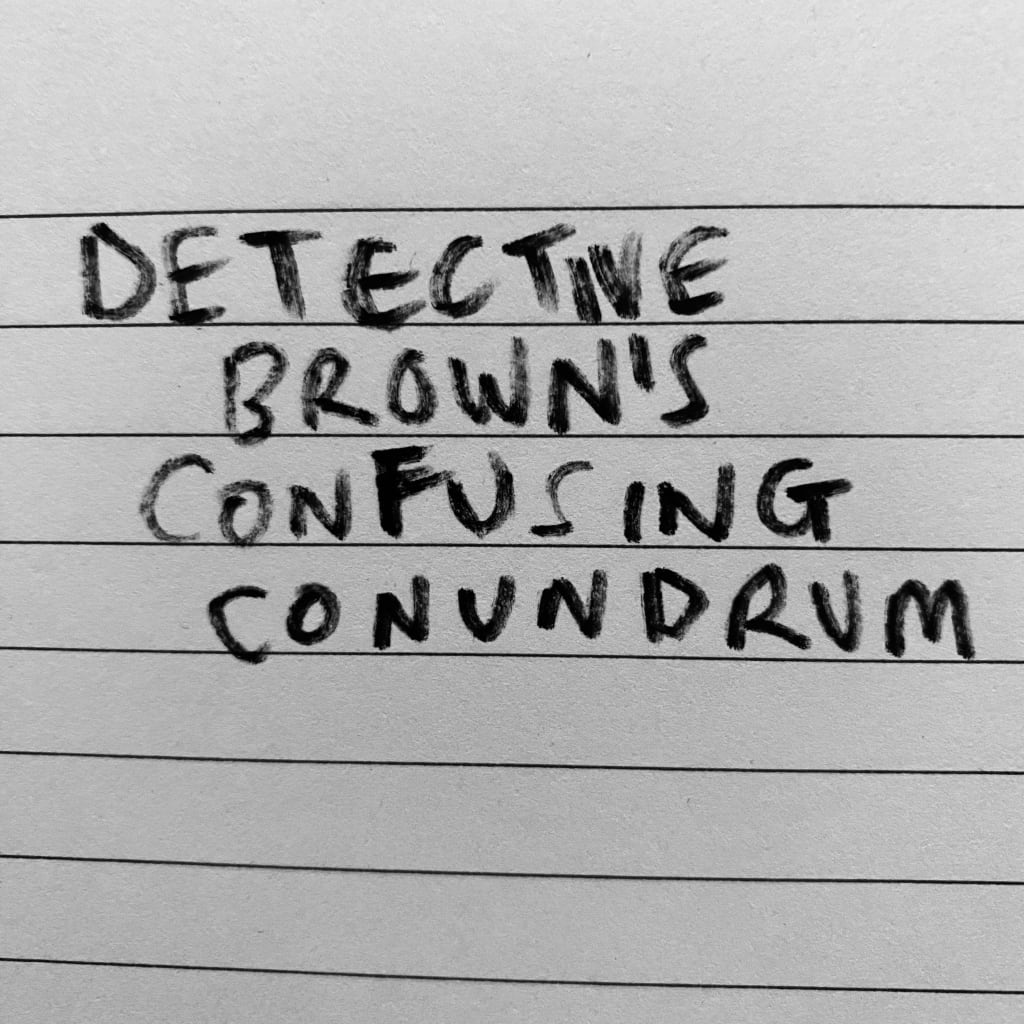 DETECTIVE
BROWN'S
CONFUSING
CONUNDRUM